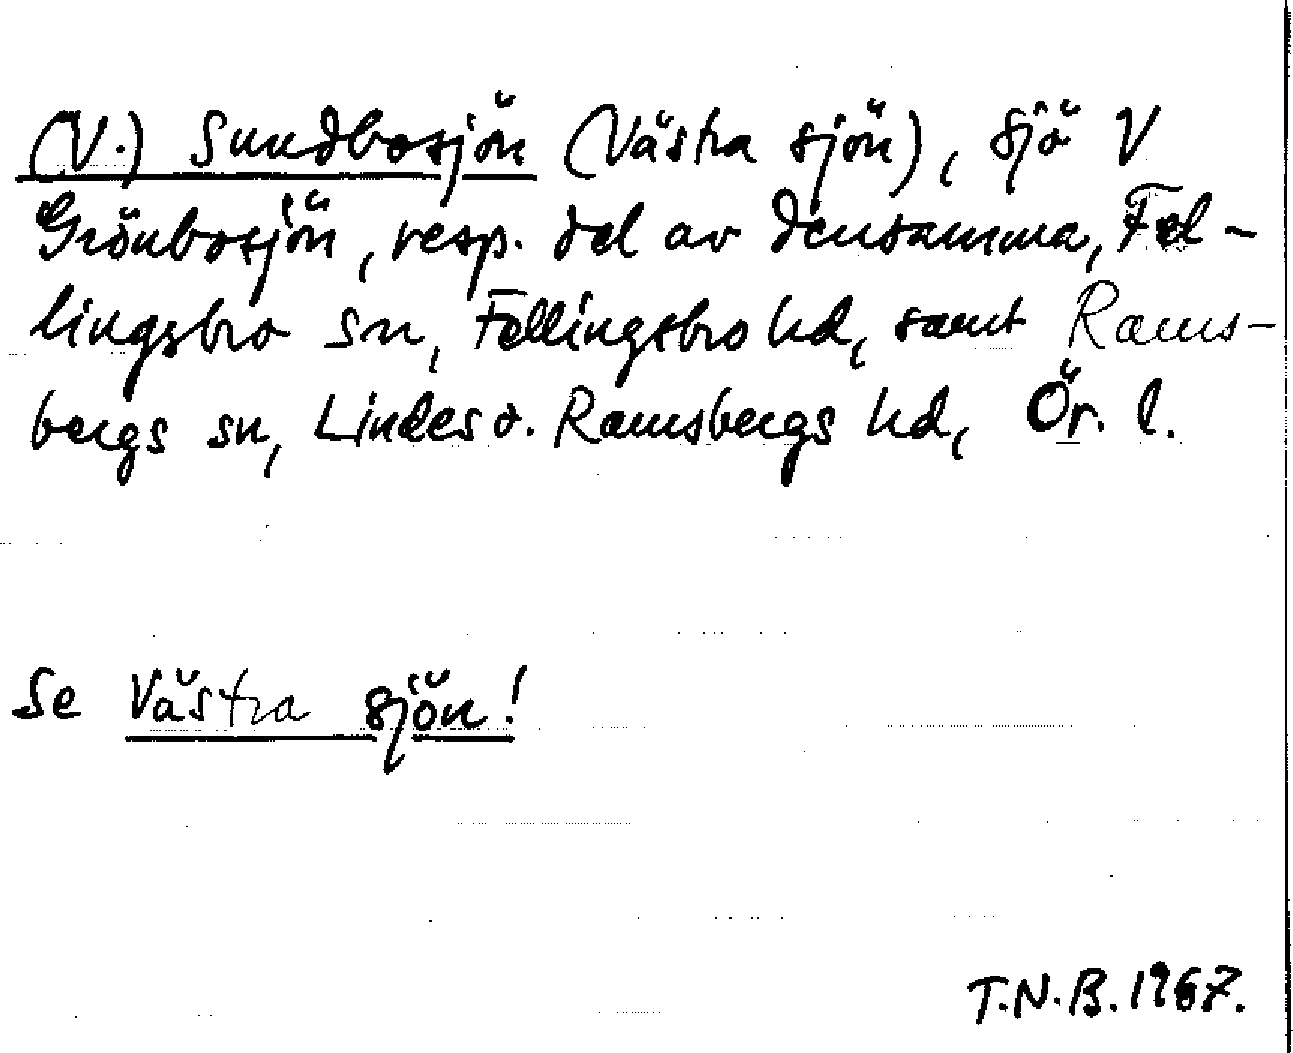 (V.) Sundbosjön (Västra sjön), sjö V
Grönbosjön, resp. del av densamma, Fel-
lingsbro sn, Fellingsbro hd, samt Rams-
bergs sn, Lindes o. Ramsbergs hd, Ör. l.
Se Västra sjön!
T.N.B. 1967.